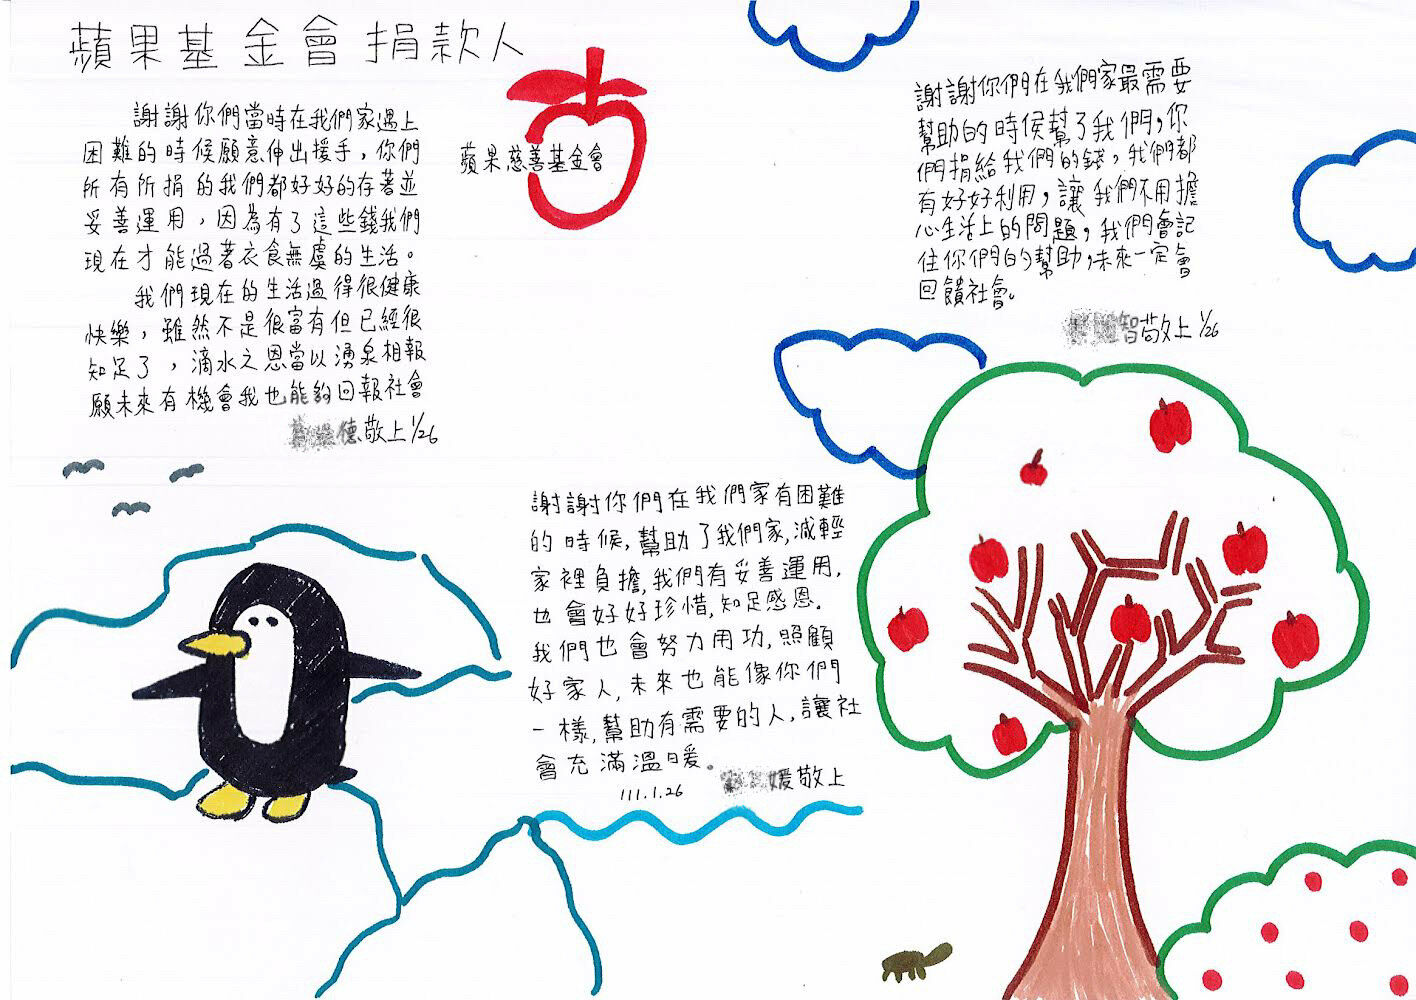 蘋果基金會捐款人
謝謝你們當時在我們家遇上
困難的時候願意伸出援手，你們
所有所捐的我們都好好的存著並
妥善運用，因為有了這些錢我們
現在才能過著衣食無虞的生活。
我們現在的生活過得很健康
快樂，雖然不是很富有但已經很
知足了，滴水之恩當以湧泉相報
願未來有機會我也能夠回報社會
德敬上 1/26
蘋果慈善基金會
謝謝你們在我們家最需要
幫助的時候幫了我們，你
們捐給我們的錢，我們都
有好好利用，讓我們不用擔
心生活上的問題，我們會記
住你們的幫助，未來一定會
回饋社會。
智敬上 1/26
謝謝你們在我們家有困難
的時候，幫助了我們家，減輕
家裡負擔，我們有妥善運用，
也會好好珍惜，知足感恩。
我們也會努力用功，照顧
好家人，未來也能像你們
一樣，幫助有需要的人，讓社
會充滿溫暖。
111.1.26 媛敬上